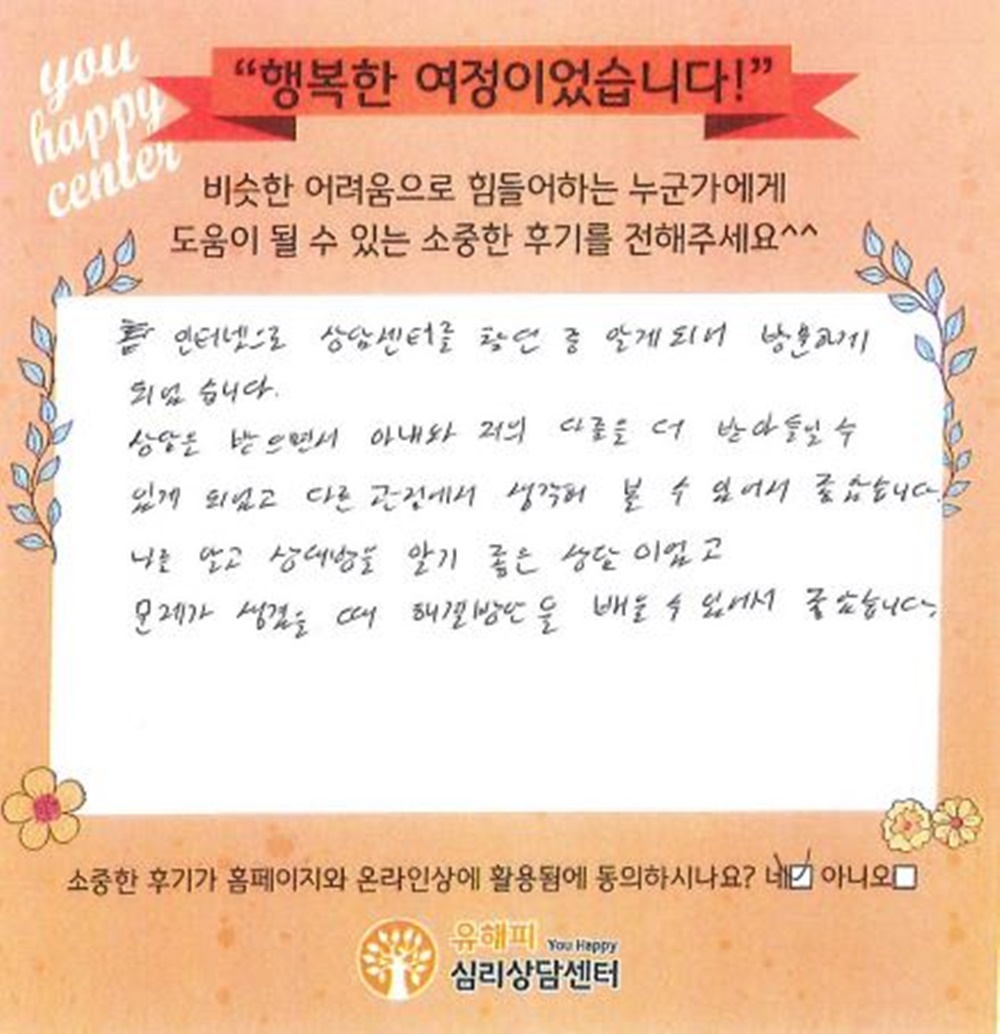 you
happy
center
“행복한 여정이었습니다!”
비슷한 어려움으로 힘들어하는 누군가에게
도움이 될 수 있는 소중한 후기를 전해주세요^^
인터넷으로 상담센터를 찾던 중 알게되어 방문하게
되었습니다.
상담을 받으면서 아내와 저의 다름을 더 받아들일 수
있게 되었고 다른 관점에서 생각해 볼 수 있어서 좋았습니다.
나를 알고 상대방을 알기 좋은 상담이었고
문제가 생겼을 때 해결방안을 배울 수 있어서 좋았습니다.
소중한 후기가 홈페이지와 온라인상에 활용됨에 동의하시나요? 네 아니오
유해피 You Happy
심리상담센터